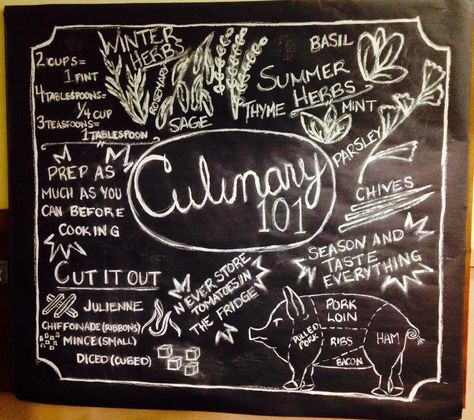 2 CUPS=
1 PINT
4 TABLESPOONS=
1/4 CUP
3 TEASPOONS=
1 TABLESPOON
WINTER
HERBS
ROSEMARY
SAGE
BASIL
SUMMER
HERBS
THYME
MINT
PARSLEY
CHIVES
Culinary
101
PREP AS
MUCH AS YOU
CAN BEFORE
COOKING
SEASON AND
TASTE
EVERYTHING
CUT IT OUT
JULIENNE
CHIFFONADE (RIBBONS)
MINCE (SMALL)
DICED (CUBED)
NEVER STORE
TOMATOES IN
THE FRIDGE
PORK
LOIN
PULLED
PORK
RIBS
HAM
BACON